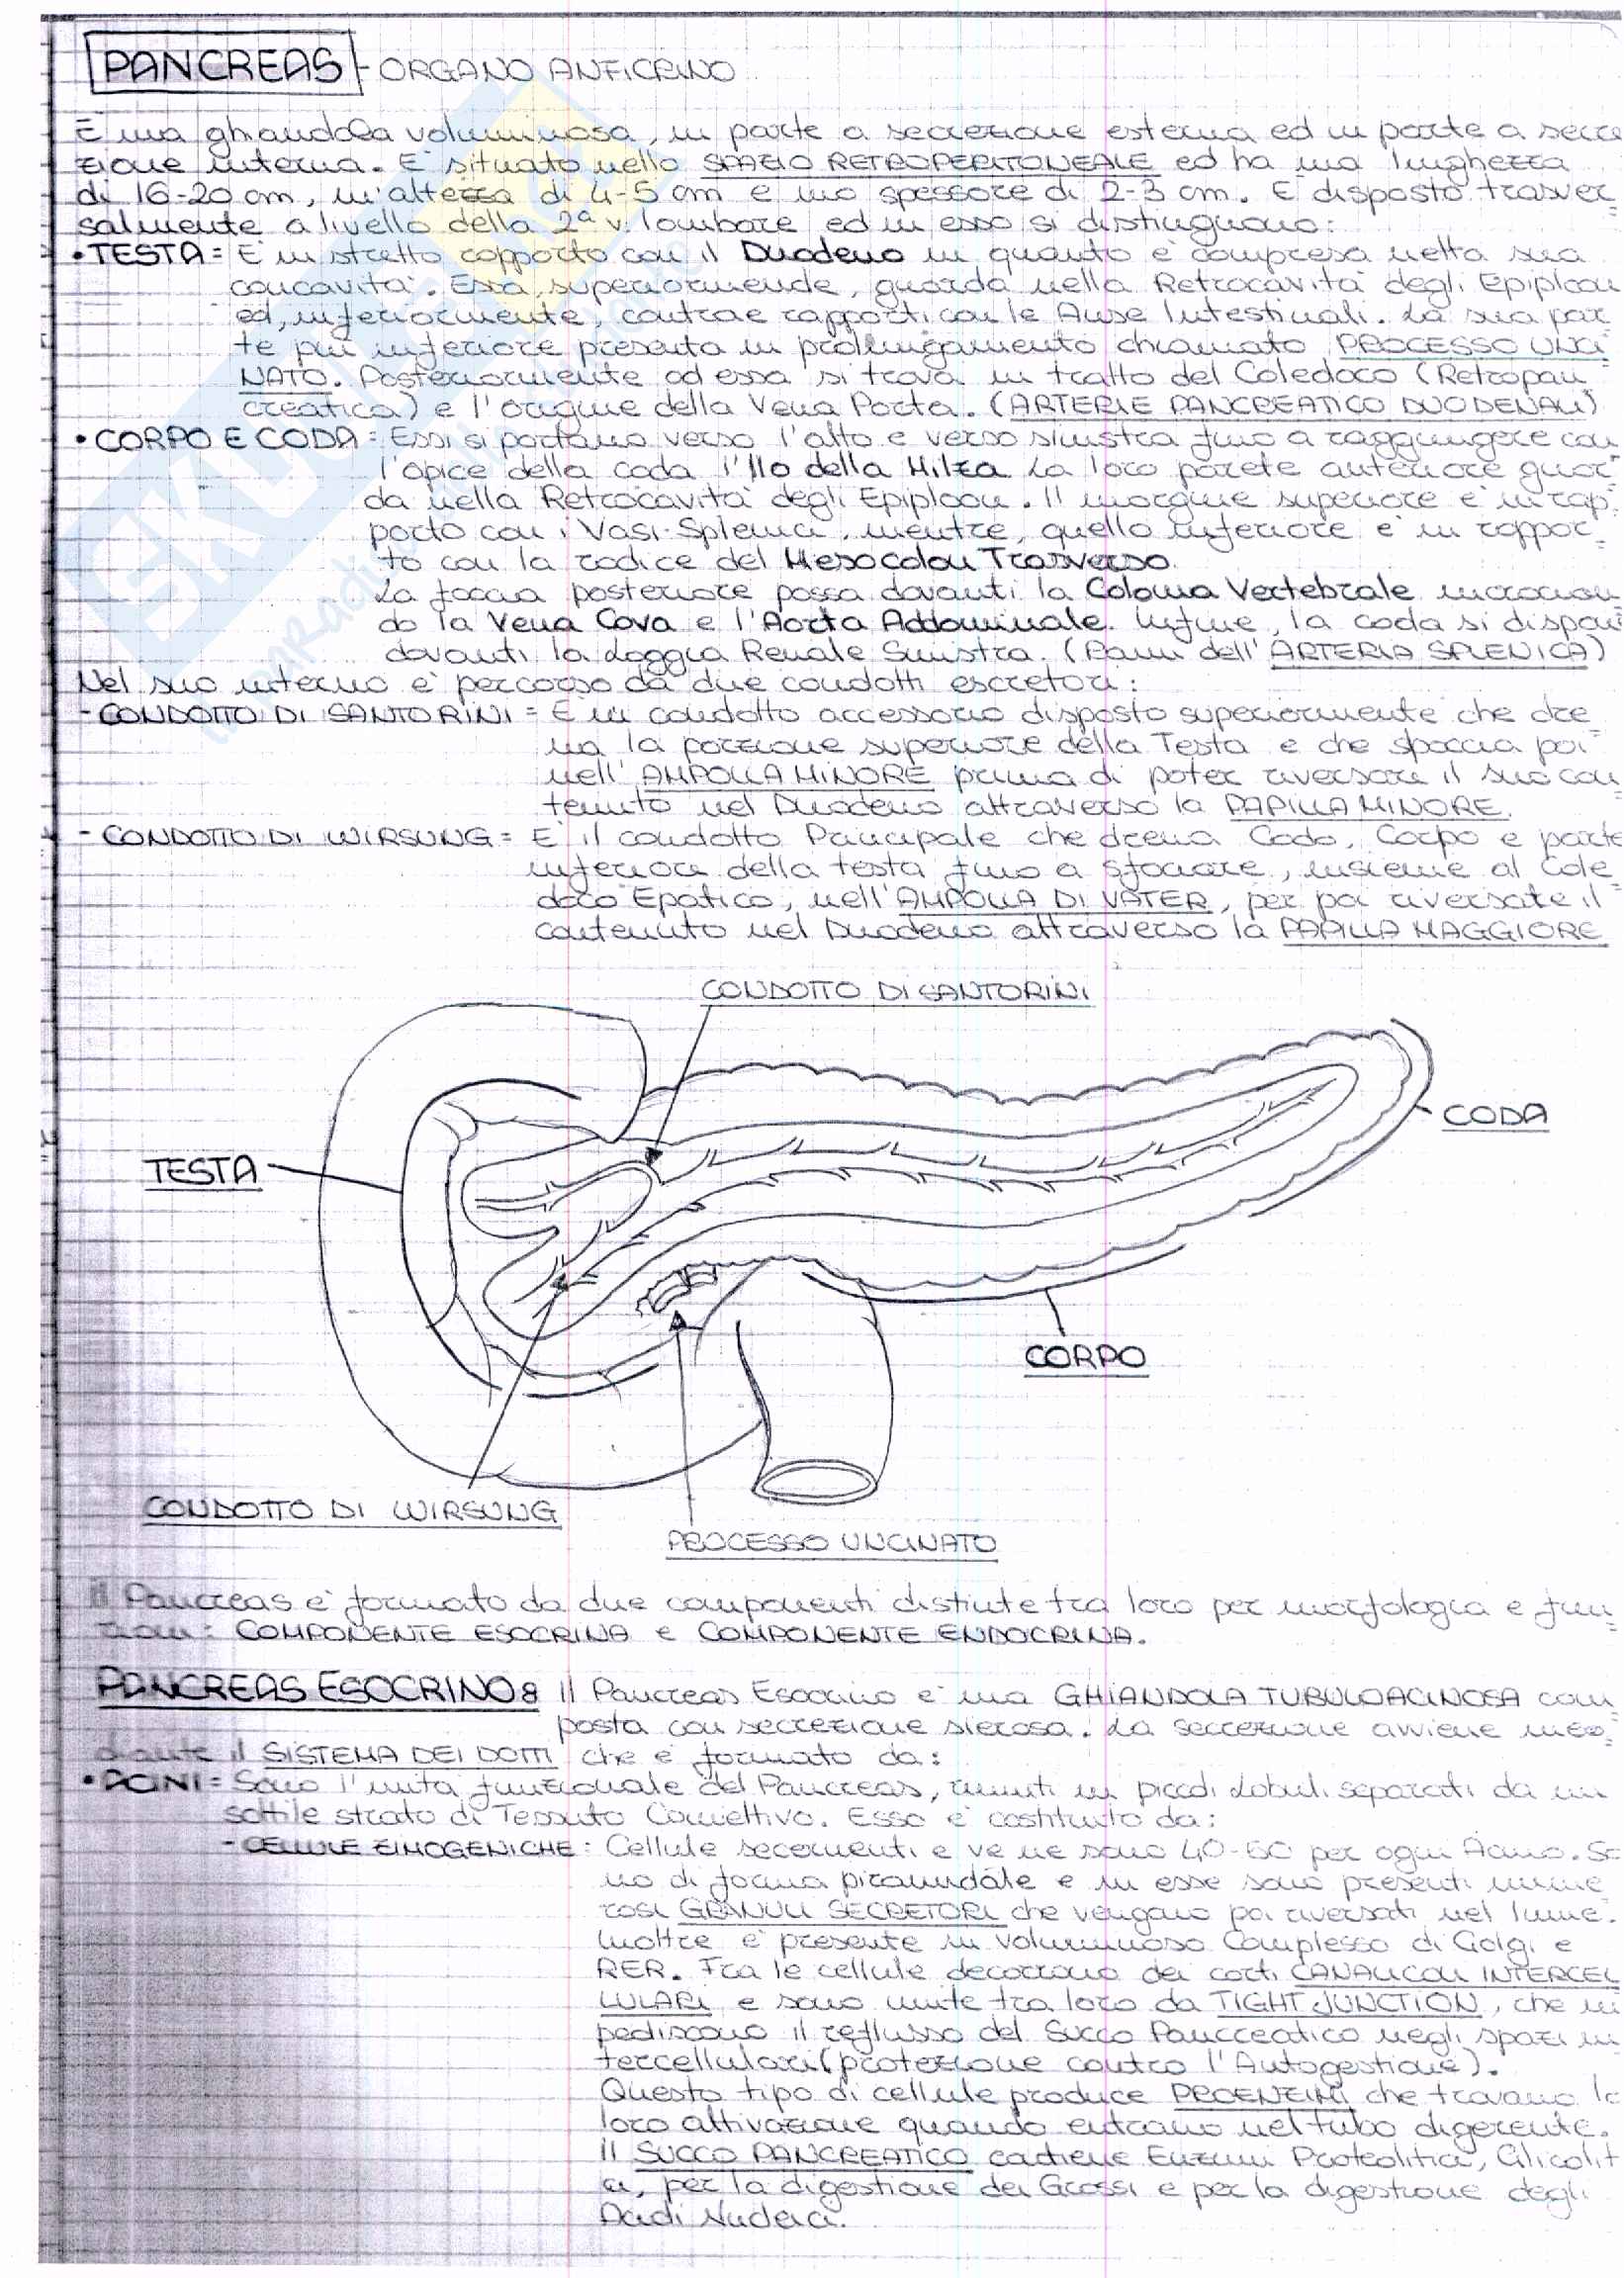 PANCREAS - ORGANO ANFICRINO
È una ghiandola voluminosa, in parte a secrezione esterna ed in parte a secre
zione interna. È situato nello SPAZIO RETROPERITONEALE ed ha una lunghezza
di 16-20 cm, un'altezza di 4-5 cm e uno spessore di 2-3 cm. È disposto trasver=
salmente a livello della 2ª v. lombare ed in esso si distinguono:
• TESTA = È in stretto rapporto con il Duodeno in quanto è compresa nella sua
concavità. Essa, superiormende, guarda nella Retrocavità degli Epiploon
ed, inferiormente, contrae rapporti con le Anse Intestinali. La sua par=
te più inferiore presenta un prolungamento chiamato PROCESSO UNCI=
NATO. Posteriormente ad essa si trova un tratto del Coledoco (Retropan=
creatica) e l'origine della Vena Porta. (ARTERIE PANCREATICO DUODENALI)
• CORPO E CODA = Essi si portano verso l'alto e verso sinistra fino a raggiungere con
l'apice della coda l'Ilo della Milza. La loro parete anteriore guar=
da nella Retrocavità degli Epiploon. Il margine superiore è in rap=
porto con i Vasi Splenici, mentre, quello inferiore è in rappor=
to con la radice del Mesocolon Trasverso.
La faccia posteriore passa davanti la Colonna Vertebrale incrocian
do la Vena Cava e l'Aorta Addominale. Infine, la coda si dispone
davanti la Loggia Renale Sinistra. (Rami dell'ARTERIA SPLENICA)
Nel suo interno è percorso da due condotti escretori:
- CONDOTTO DI SANTORINI = È un condotto accessorio disposto superiormente che dre
na la porzione superiore della Testa e che sbocca poi
nell'AMPOLLA MINORE prima di poter riversare il suo con
tenuto nel Duodeno attraverso la PAPILLA MINORE.
- CONDOTTO DI WIRSUNG = È il condotto Principale che drena Coda, Corpo e parte
inferiore della testa fino a sfociare, insieme al Cole
doco Epatico, nell'AMPOLLA DI VATER, per poi riversare il
contenuto nel Duodeno attraverso la PAPILLA MAGGIORE
CONDOTTO DI SANTORINI
CODA
TESTA
CORPO
CONDOTTO DI WIRSUNG
PROCESSO UNCINATO
Il Pancreas è formato da due componenti distinte tra loro per morfologia e fun=
zioni: COMPONENTE ESOCRINA e COMPONENTE ENDOCRINA.
PANCREAS ESOCRINO: Il Pancreas Esocrino è una GHIANDOLA TUBULOACINOSA com
posta con secrezione sierosa. La secrezione avviene me=
diante il SISTEMA DEI DOTTI che è formato da:
• ACINI = Sono l'unità funzionale del Pancreas, riuniti in piccoli Lobuli separati da un
sottile strato di Tessuto Connettivo. Esso è costituito da:
- CELLULE ZIMOGENICHE: Cellule secernenti e ve ne sono 40-50 per ogni Acino. So
no di forma piramidale e in esse sono presenti nume
rosi GRANULI SECRETORI che vengano poi riversati nel lume.
Inoltre è presente un voluminoso Complesso di Golgi e
RER. Fra le cellule decorrono dei corti CANALICOLI INTERCEL
LULARI e sono unite tra loro da TIGHT JUNCTION, che im
pediscono il reflusso del Succo Pancreatico negli spazi in
tercellulari (protezione contro l'Autogestione).
Questo tipo di cellule produce PROENZIMI che trovano la
loro attivazione quando entrano nel tubo digerente.
Il SUCCO PANCREATICO contiene Enzimi Proteolitici, Glicolit
ci, per la digestione dei Grassi e per la digestione degli
Acidi Nucleici.